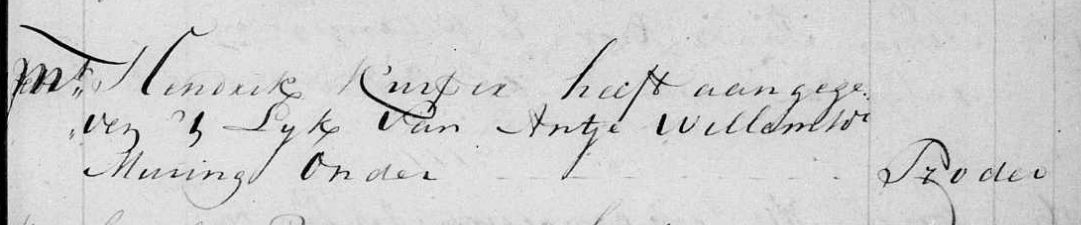 Mr. Hendrik Kuiper heeft aangege„
„ven 't Lyk van Antje Willems We
Muring Onder Pro deo